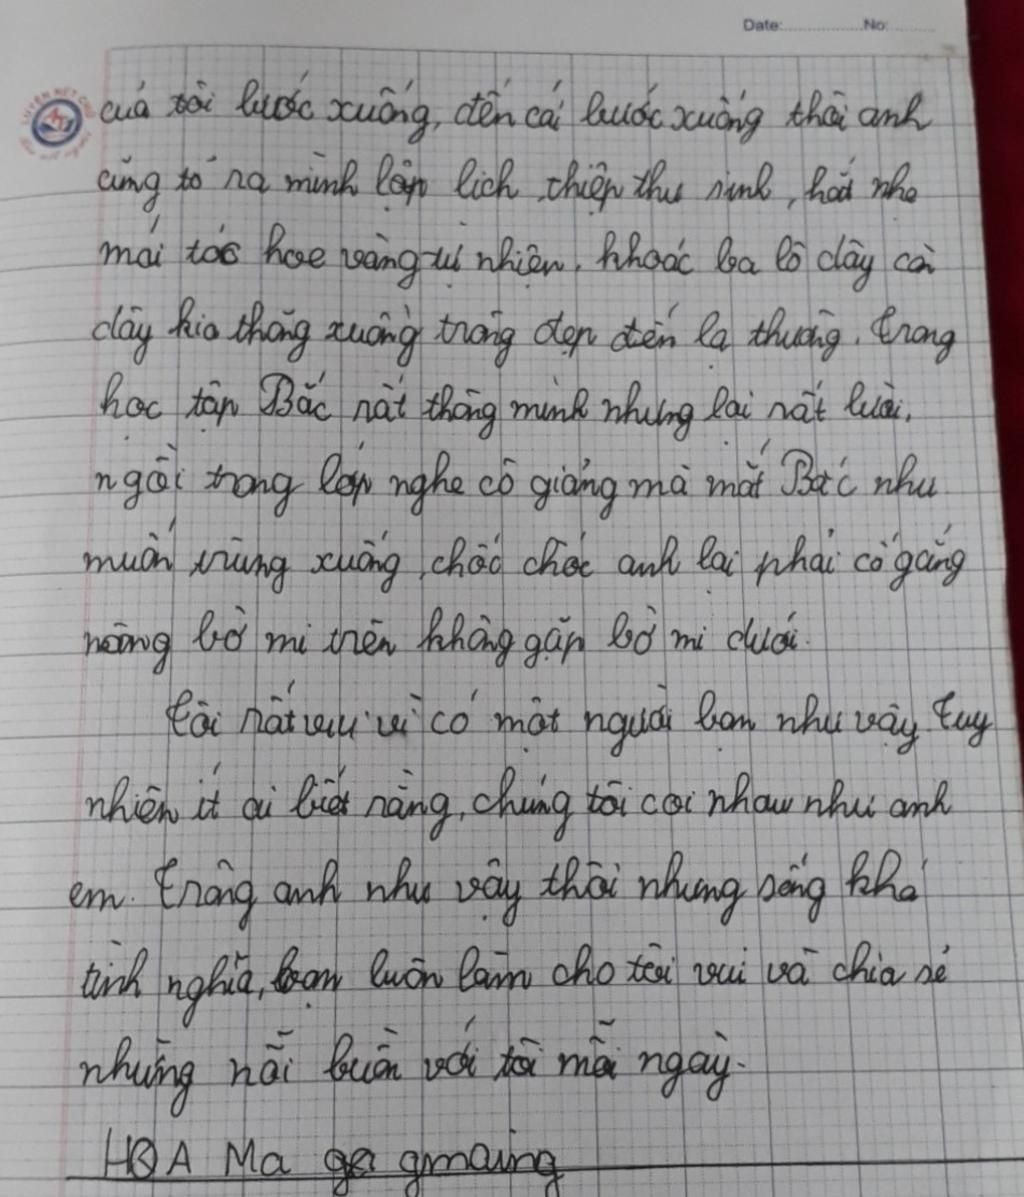 Date: No:
LUYỆN NÉT CHỮ
của tôi bước xuống, đến cái bước xuống thôi anh
cũng tỏ ra mình lập lịch, thiệp thư sinh, hất nhẹ
mái tóc hoe vàng tự nhiên, khoác ba lô dây cài
dây kia thõng xuống trông đẹp đến lạ thường. Trong
học tập Bắc rất thông minh nhưng lại rất lười,
ngồi trong lớp nghe cô giảng mà mắt Bắc như
muốn trùng xuống, chốc chốc anh lại phải cố gắng
nâng bờ mi trên không gặp bờ mi dưới.
Tôi rất vui vì có một người bạn như vậy tuy
nhiên ít ai biết rằng, chúng tôi coi nhau như anh
em. Trông anh như vậy thôi nhưng sống khá
tình nghĩa, bạn luôn làm cho tôi vui và chia sẻ
những nỗi buồn với tôi mỗi ngày.
HOA Ma ga gmaing